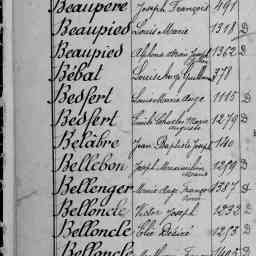 Beaupère Joseph François 491
Beaupied Louis Marie 1318 D
Beaupied Marie Joseph 1362 D
Bébat Louis 378
Bedfert Louis Marie Ange 1115 D
Bedfert Emile Charles Marie Auguste 1279 D
Belâbre Jean Baptiste Joseph 140
Bellebon Joseph 1259 D
Bellenger Ange François 1387 D
Belloncle Victor Joseph 1232 D
Belloncle Désiré 1273 D
Belloncle